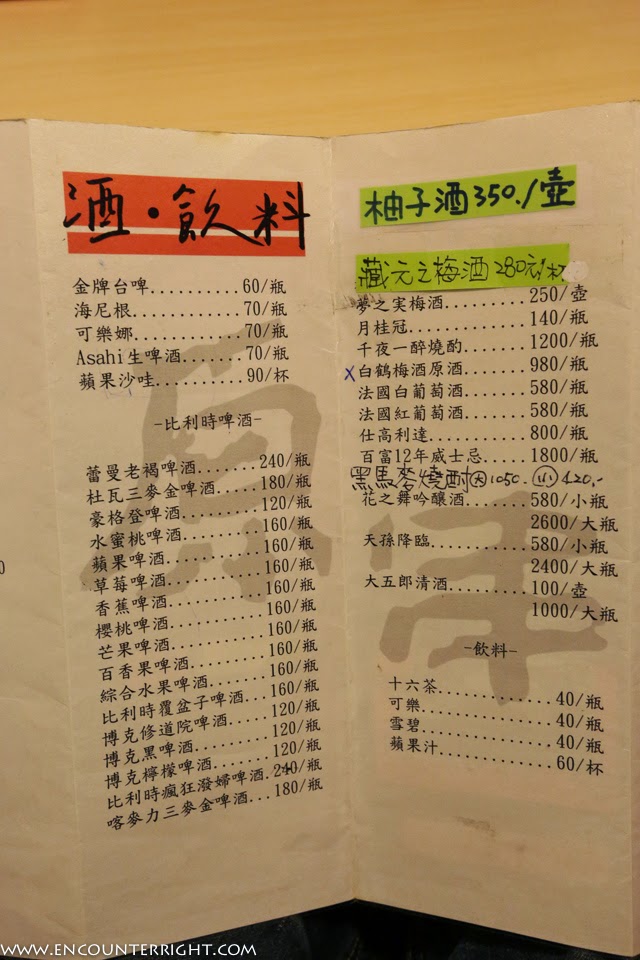 酒·飲料
金牌台啤..........60/瓶
海尼根............70/瓶
可樂娜............70/瓶
Asahi生啤酒.......70/瓶
蘋果沙哇..........90/杯
-比利時啤酒-
蕾曼老褐啤酒.......240/瓶
杜瓦三麥金啤酒.....180/瓶
豪格登啤酒.........120/瓶
水蜜桃啤酒.........160/瓶
蘋果啤酒...........160/瓶
草莓啤酒...........160/瓶
香蕉啤酒...........160/瓶
櫻桃啤酒...........160/瓶
芒果啤酒...........160/瓶
百香果啤酒.........160/瓶
綜合水果啤酒.......160/瓶
比利時覆盆子啤酒...160/瓶
博克修道院啤酒.....120/瓶
博克黑啤酒.........120/瓶
博克檸檬啤酒.......120/瓶
比利時瘋狂潑婦啤酒.240/瓶
喀麥力三麥金啤酒...180/瓶
柚子酒350./壺
藏元之梅酒280元/杯
夢之実梅酒........250/壺
月桂冠............140/瓶
千夜一醉燒酌.....1200/瓶
X白鶴梅酒原酒.......980/瓶
法國白葡萄酒......580/瓶
法國紅葡萄酒......580/瓶
仕高利達..........800/瓶
百富12年威士忌...1800/瓶
黑馬麥燒酎大1050. 小420.-
花之舞吟釀酒......580/小瓶
2600/大瓶
天孫降臨..........580/小瓶
2400/大瓶
大五郎清酒........100/壺
1000/大瓶
-飲料-
十六茶............40/瓶
可樂..............40/瓶
雪碧..............40/瓶
蘋果汁............60/杯
0
WWW.ENCOUNTERRIGHT.COM